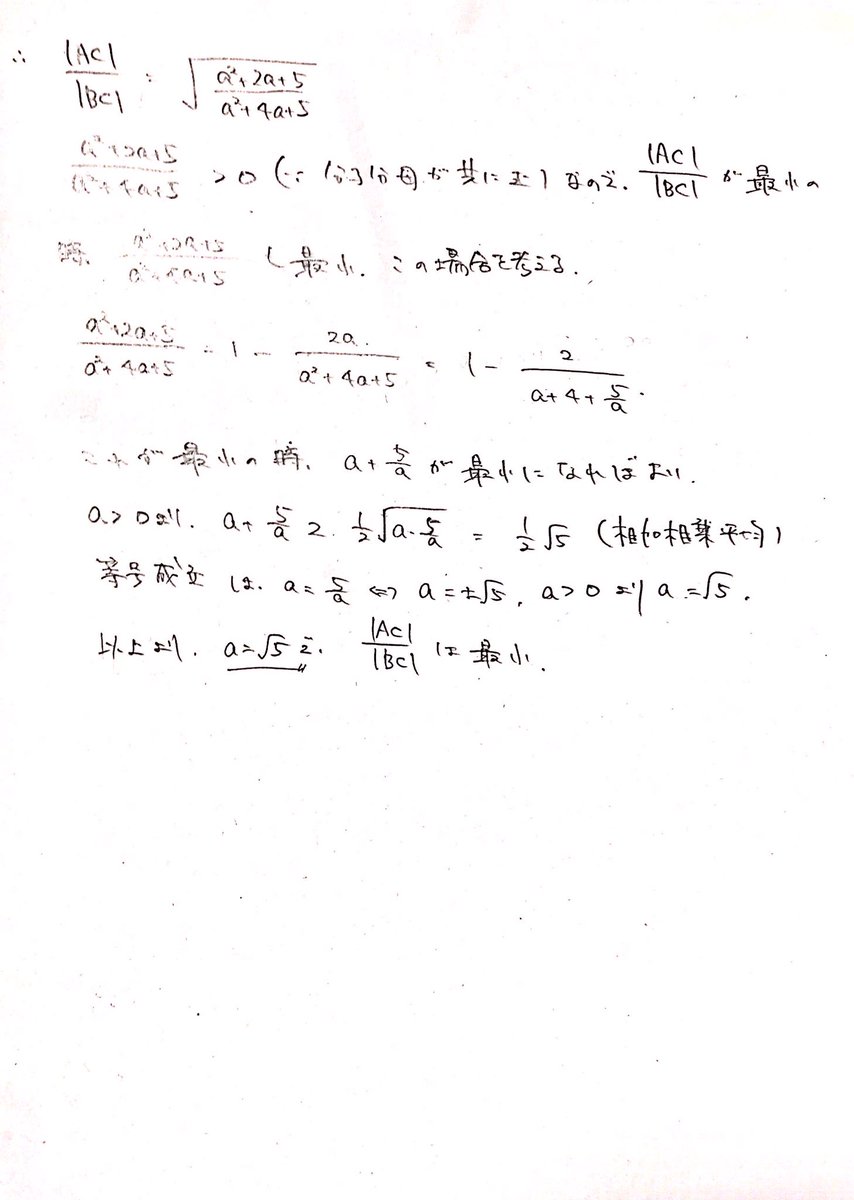 ∴ |AC|/|BC| = √((a²+2a+5)/(a²+4a+5))
(a²+2a+5)/(a²+4a+5) > 0 (∵ 分子分母が共に正) なので、|AC|/|BC| が最小の
時、(a²+2a+5)/(a²+4a+5) も最小. この場合を考える.
(a²+2a+5)/(a²+4a+5) = 1 - 2a/(a²+4a+5) = 1 - 2/(a+4+5/a).
これが最小の時、a+5/a が最小になればよい.
a>0より、a+5/a ≧ 1/2√(a・5/a) = 1/2√5 (相加相乗平均)
等号成立は、a=5/a ⇔ a=±√5, a>0より a=√5.
以上より、a=√5で、|AC|/|BC| は最小.